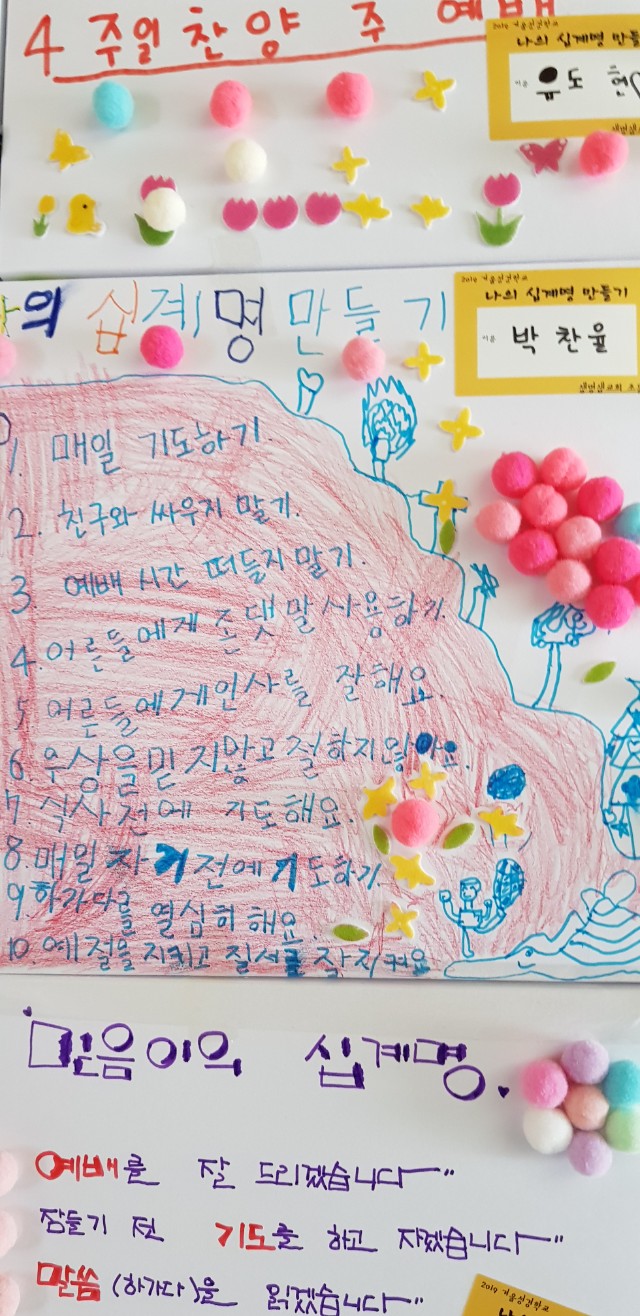 4 주일 찬양 주 예배
2019 겨울성경학교
나의 십계명 만들
이름 유도현
2019 겨울성경학교
나의 십계명 만들기
이름 박찬율
의 십계명 만들기
1. 매일 기도하기.
2. 친구와 싸우지 말기.
3. 예배 시간 떠들지 말기.
4. 어른들에게 존댓말 사용하기.
5. 어른들에게 인사를 잘해요.
6. 우상을 믿지 않고 절하지 않아요.
7. 식사 전에 기도해요.
8. 매일 자기 전에 기도하기.
9. 하가다를 열심히 해요.
10. 예절을 지키고 질서를 잘 지켜요
믿음이의 십계명.
예배를 잘 드리겠습니다~"
잠들기 전 기도를 하고 자겠습니다~"
말씀 (하가다)을 읽겠습니다~"
2019 겨울성경학교